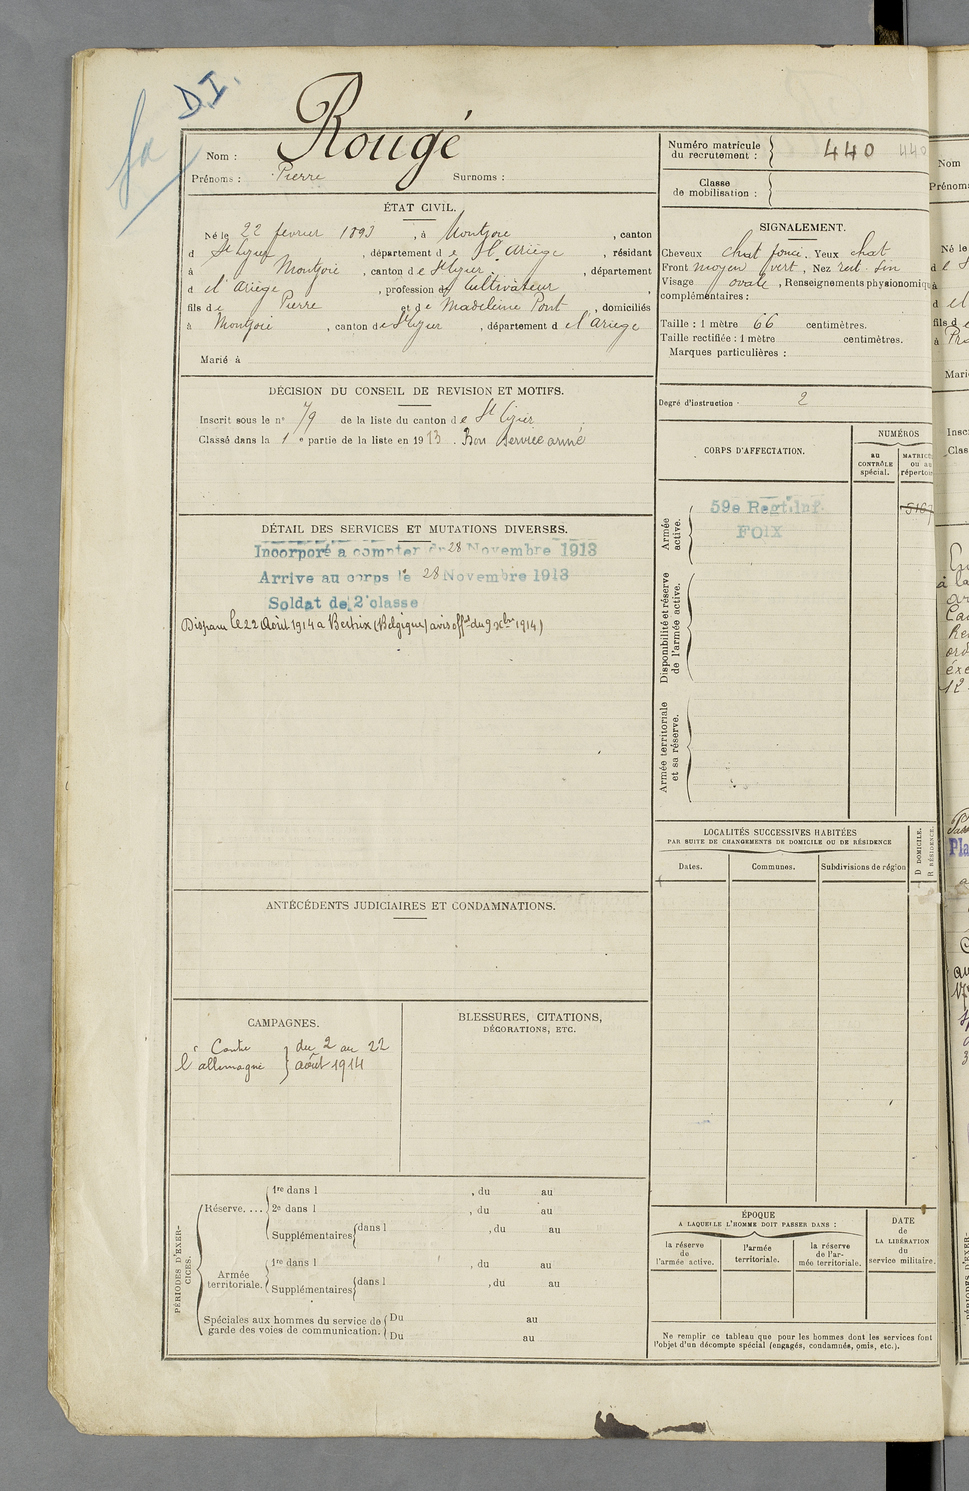 D.I.
Nom : Rougé
Prénoms : Pierre Surnoms :
Numéro matricule du recrutement : 440 440
Classe de mobilisation :
ÉTAT CIVIL.
Né le 22 février 1893, à Montjoie, canton
d St Lizier, département de l'Ariège, résidant
à Montjoie, canton de St Lizier, département
d el'Ariège, profession de Cultivateur,
fils de Pierre et de Madeleine Pont, domiciliés
à Montjoie, canton de St Lizier, département d el'Ariège
Marié à
SIGNALEMENT.
Cheveux chat foncé. Yeux chat
Front moyen vert, Nez rect. Sin
Visage ovale, Renseignements physionomiqu
complémentaires :
Taille : 1 mètre 66 centimètres.
Taille rectifiée : 1 mètre centimètres.
Marques particulières :
Degré d'instruction. 2
DÉCISION DU CONSEIL DE REVISION ET MOTIFS.
Inscrit sous le n° 79 de la liste du canton de St Lizier
Classé dans la 1e partie de la liste en 1913. Bon service armé
CORPS D'AFFECTATION.
NUMÉROS
au CONTRÔLE spécial.
MATRICULE ou au répertoire
Armée active.
59e Regt. Inf.
FOIX
Disponibilité et réserve de l'armée active.
Armée territoriale et sa réserve.
DÉTAIL DES SERVICES ET MUTATIONS DIVERSES.
Incorporé a compter du 28 Novembre 1913
Arrive au corps le 28 Novembre 1913
Soldat de 2e classe
Disparu le 22 Août 1914 a Bertrix (Belgique) avis offel du 9 Xbre 1914)
LOCALITÉS SUCCESSIVES HABITÉES
PAR SUITE DE CHANGEMENTS DE DOMICILE OU DE RÉSIDENCE
D DOMICILE.
R RÉSIDENCE.
Dates. Communes. Subdivisions de région
ANTÉCÉDENTS JUDICIAIRES ET CONDAMNATIONS.
CAMPAGNES.
Contre l'allemagne } du 2 au 22 août 1914
BLESSURES, CITATIONS,
DÉCORATIONS, ETC.
PÉRIODES D'EXERCICES.
Réserve....
1re dans l , du au
2e dans l , du au
Supplémentaires dans l , du au
Armée territoriale.
1re dans l , du au
Supplémentaires dans l , du au
Spéciales aux hommes du service de Du au
garde des voies de communication. Du au
ÉPOQUE
A LAQUELLE L'HOMME DOIT PASSER DANS :
la réserve de l'armée active.
l'armée territoriale.
la réserve de l'armée territoriale.
DATE de LA LIBÉRATION du service militaire.
Ne remplir ce tableau que pour les hommes dont les services font
l'objet d'un décompte spécial (engagés, condamnés, omis, etc.).